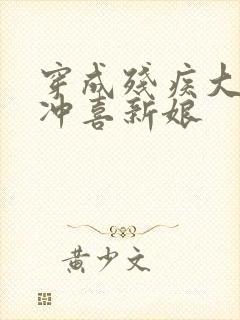 穿成残疾大
冲喜新娘
黄少文